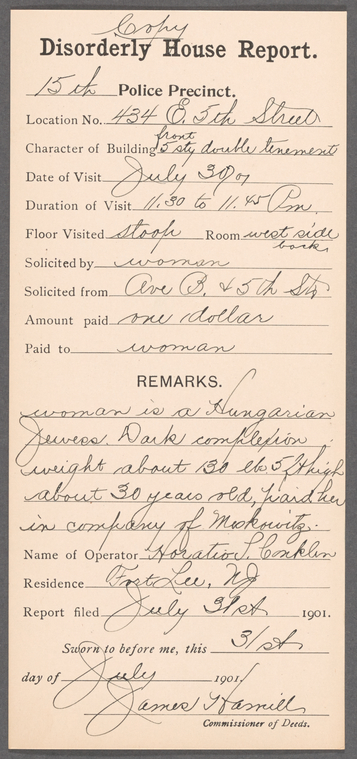 Copy
Disorderly House Report.
15th Police Precinct.
Location No. 434 E. 5th Street
front
Character of Building 5 sty double tenement
Date of Visit July 30/01
Duration of Visit 11.30 to 11.45 Pm
Floor Visited stoop Room west side
back
Solicited by woman
Solicited from Ave B. & 5th St
Amount paid one dollar
Paid to woman
REMARKS.
woman is a Hungarian
Jewess Dark complexion
weight about 30 lbs 5 ft high
about 30 years old, paid her
in company of Moskowitz.
Name of Operator Horatio S. Conklin
Residence Fort Lee, NJ
Report filed July 31st 1901.
Sworn to before me, this 31st
day of July 1901.
James Hamill
Commissioner of Deeds.